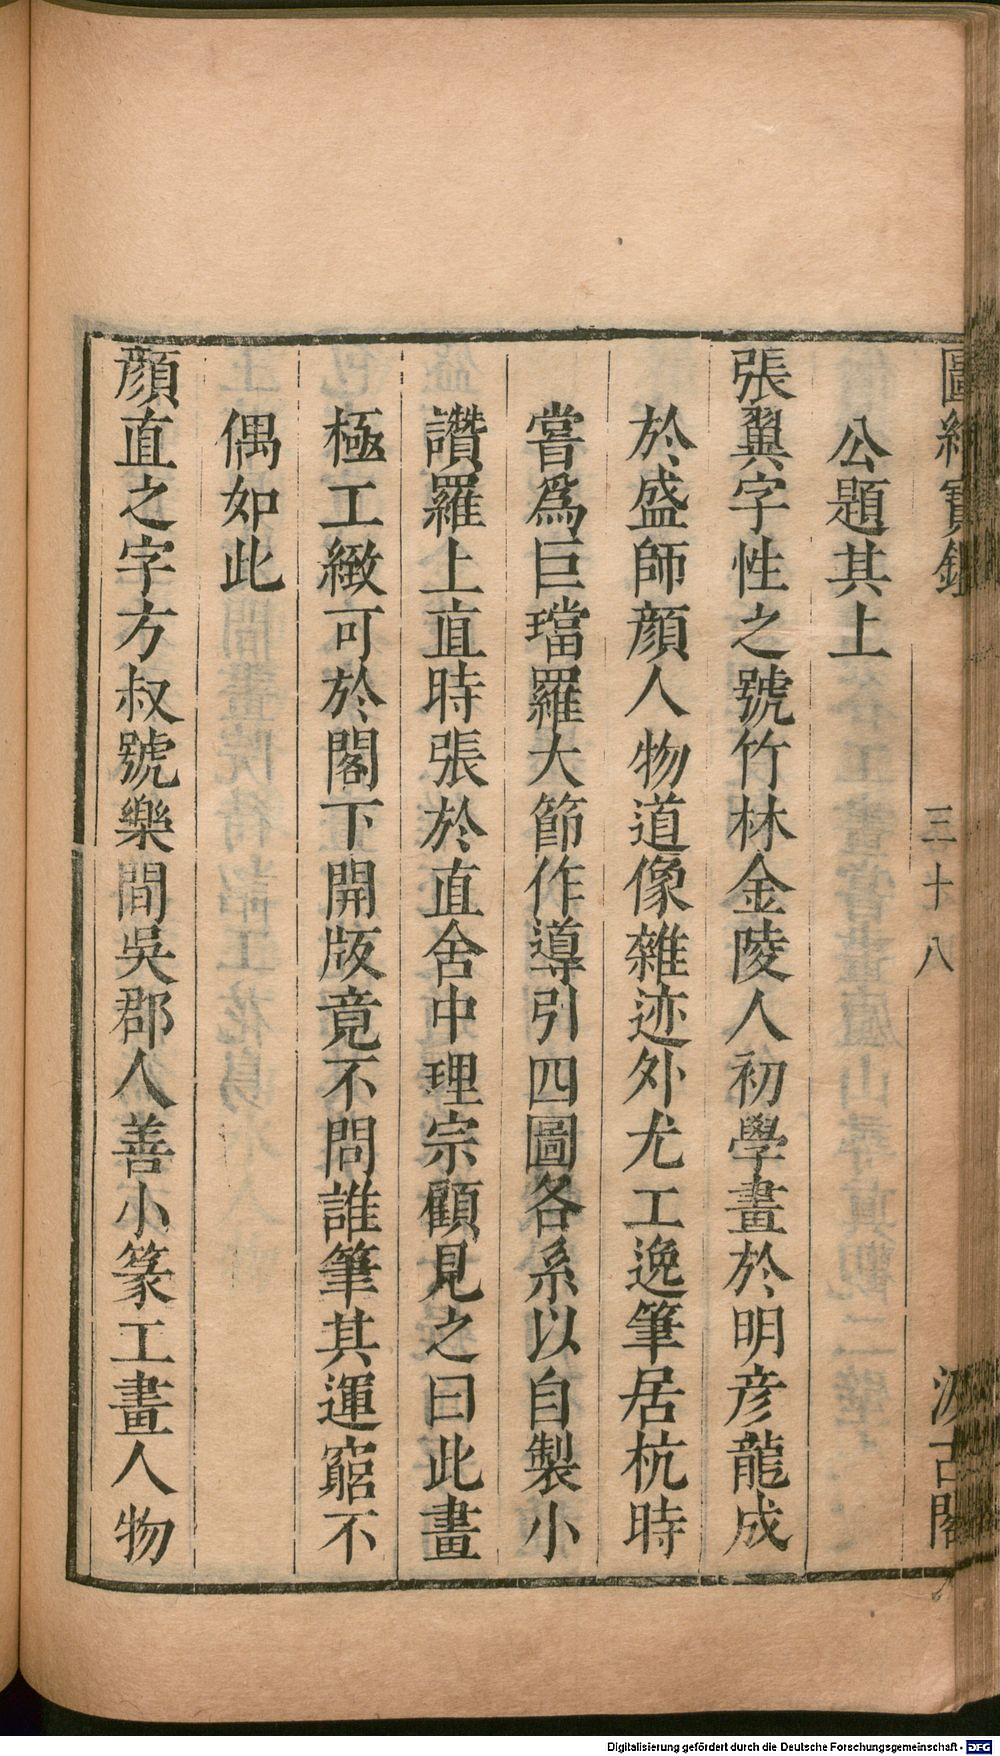 圖繪寶鑑
三十八
汲古閣
公題其上
張翼字性之號竹林金陵人初學畫於明彦龍成
於盛師顔人物道像雜迹外尤工逸筆居杭時
嘗爲巨璫羅大節作導引四圖各系以自製小
讚羅上直時張於直舍中理宗顧見之曰此畫
極工緻可於閣下開版竟不問誰筆其運窮不
偶如此
顔直之字方叔號樂間吳郡人善小篆工畫人物
Digitalisierung gefördert durch die Deutsche Forschungsgemeinschaft - DFG